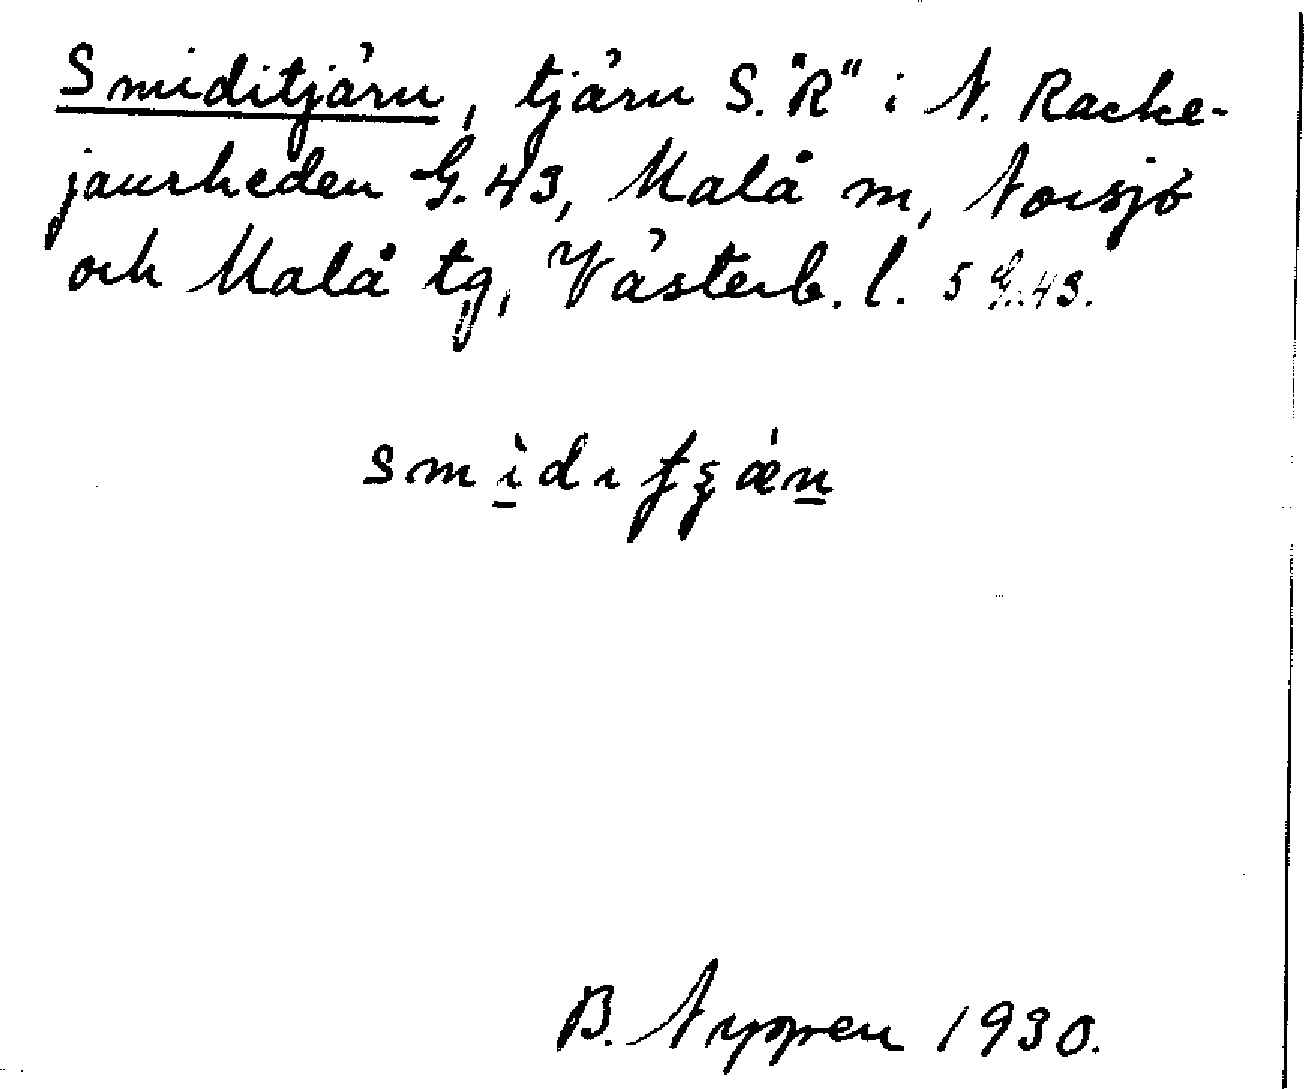 Smiditjärn, tjärn S. "R" i N. Racke-
jaurheden G. 43, Malå m, Norsjö
och Malå tg, Västerb. l. 5 G. 43.
smìdi
B. Nyppen 1930.